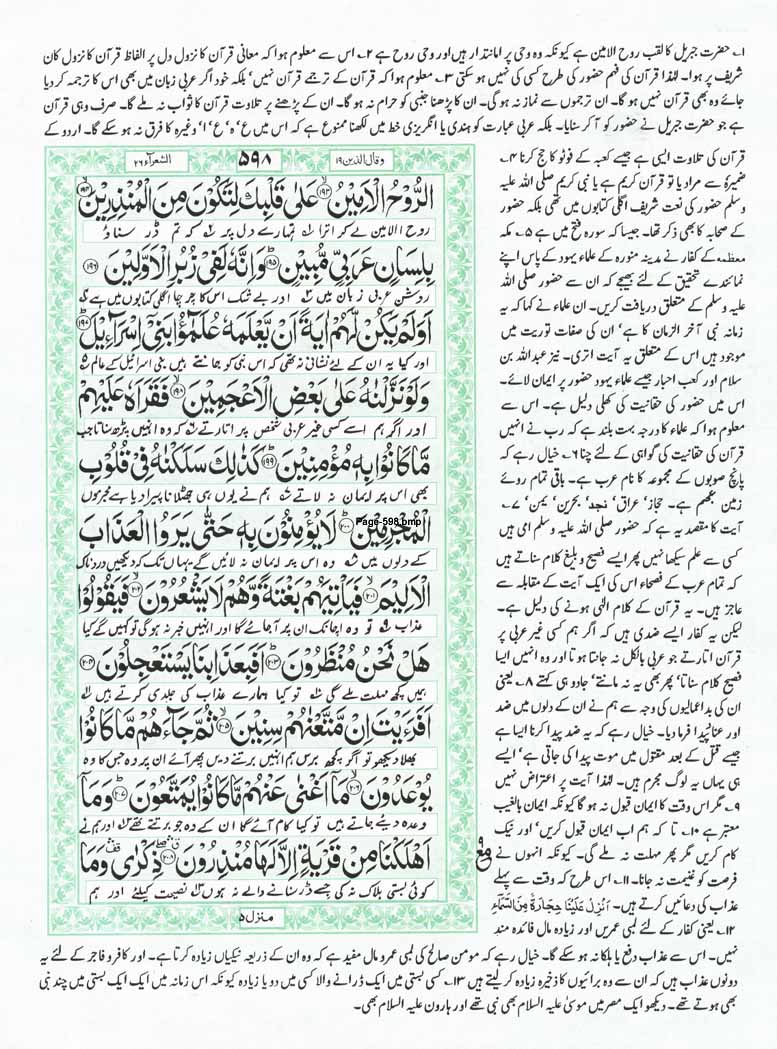 ۱۔ حضرت جبریل کا لقب روح الامین ہے کیونکہ وہ وحی پر امانتدار ہیں اور وحی روح ہے ۲۔ اس سے معلوم ہوا کہ معانی قرآن کا نزول دل پر الفاظ قرآن کا نزول کان
شریف پر ہوا۔ لہٰذا قرآن کی فہم حضور کی طرح کسی کی نہیں ہو سکتی ۳۔ معلوم ہوا کہ قرآن کے ترجمے قرآن نہیں، بلکہ خود اگر عربی زبان میں بھی اس کا ترجمہ کر دیا
جائے وہ بھی قرآن نہیں ہو گا۔ ان ترجموں سے نماز نہ ہو گی۔ ان کا پڑھنا جنبی کو حرام نہ ہو گا۔ ان کے پڑھنے پر تلاوت قرآن کا ثواب نہ ملے گا۔ صرف وہی قرآن
ہے جو حضرت جبریل نے حضور کو آ کر سنایا۔ بلکہ عربی عبارت کو ہندی یا انگریزی خط میں لکھنا ممنوع ہے کہ اس میں ع، ہ، ع، ا، وغیرہ کا فرق نہ ہو سکے گا۔ اردو کے
وقال الذین ۱۹
۵۹۸
الشعرآء ۲۶
الرُّوْحُ الْاَمِیْنُ ۝۱۹۳ عَلٰی قَلْبِكَ لِتَكُوْنَ مِنَ الْمُنْذِرِیْنَ ۝۱۹۴
روح الامین لے کر اترا تمہارے دل پر کہ تم ڈر سناؤ
بِلِسَانٍ عَرَبِیٍّ مُّبِیْنٍ ۝۱۹۵ وَاِنَّهٗ لَفِیْ زُبُرِ الْاَوَّلِیْنَ ۝۱۹۶
روشن عربی زبان میں اور بے شک اس کا چرچا اگلی کتابوں میں ہے
اَوَلَمْ یَكُنْ لَّهُمْ اٰیَةً اَنْ یَّعْلَمَهٗ عُلَمٰٓؤُا بَنِیْۤ اِسْرَآءِیْلَ ۝۱۹۷
اور کیا یہ ان کے لئے نشانی نہ تھی کہ اس نبی کو جانتے ہیں بنی اسرائیل کے عالم
وَلَوْ نَزَّلْنٰهُ عَلٰی بَعْضِ الْاَعْجَمِیْنَ ۝۱۹۸ فَقَرَاَهٗ عَلَیْهِمْ
اور اگر ہم اسے کسی غیر عربی شخص پر اتارتے کہ وہ انہیں پڑھ سناتا جب
مَّا كَانُوْا بِهٖ مُؤْمِنِیْنَ ۝۱۹۹ كَذٰلِكَ سَلَكْنٰهُ فِیْ قُلُوْبِ
بھی اس پر ایمان نہ لاتے ہم نے یوں ہی جھٹلانا پیرا دیا ہے مجرموں
الْمُجْرِمِیْنَ ۝۲۰۰ لَا یُؤْمِنُوْنَ بِهٖ حَتّٰی یَرَوُا الْعَذَابَ
Page-598.bmp
کے دلوں میں وہ اس پر ایمان نہ لائیں گے یہاں تک کہ دیکھیں دردناک
الْاَلِیْمَ ۝۲۰۱ فَیَاْتِیَهُمْ بَغْتَةً وَّهُمْ لَا یَشْعُرُوْنَ ۝۲۰۲ فَیَقُوْلُوْا
عذاب تو وہ اچانک ان پر آجائے گا اور انہیں خبر نہ ہوگی تو کہیں گے کیا
هَلْ نَحْنُ مُنْظَرُوْنَ ۝۲۰۳ اَفَبِعَذَابِنَا یَسْتَعْجِلُوْنَ ۝۲۰۴
ہمیں کچھ مہلت ملے گی تو کیا ہمارے عذاب کی جلدی کرتے ہیں
اَفَرَءَیْتَ اِنْ مَّتَّعْنٰهُمْ سِنِیْنَ ۝۲۰۵ ثُمَّ جَآءَهُمْ مَّا كَانُوْا
بھلا دیکھو تو اگر کچھ برس ہم انہیں برتنے دیں پھر آئے ان پر وہ جس کا وہ
یُوْعَدُوْنَ ۝۲۰۶ مَاۤ اَغْنٰی عَنْهُمْ مَّا كَانُوْا یُمَتَّعُوْنَ ۝۲۰۷ وَمَاۤ
وعدہ دیئے جاتے ہیں تو کیا کام آئے گا ان کے وہ جو برتتے تھے اور ہم نے
اَهْلَكْنَا مِنْ قَرْیَةٍ اِلَّا لَهَا مُنْذِرُوْنَ ۝۲۰۸ ذِكْرٰی وَمَا
کوئی بستی ہلاک نہ کی جسے ڈر سنانے والے نہ ہوں نصیحت کیلئے اور ہم
منزل ۵
قرآن کی تلاوت ایسی ہے جیسے کعبہ کے فوٹو کا حج کرنا ۴۔
ضمیرہٗ سے مراد یا تو قرآن کریم ہے یا نبی کریم صلی اللہ علیہ
وسلم حضور کی نعت شریف اگلی کتابوں میں تھی بلکہ حضور
کے صحابہ کا بھی ذکر تھا۔ جیسا کہ سورہ فتح میں ہے ۵۔ مکہ
معظمہ کے کفار نے مدینہ منورہ کے علماء یہود کے پاس اپنے
نمائندے تحقیق کے لئے بھیجے کہ ان سے حضور صلی اللہ
علیہ وسلم کے متعلق دریافت کریں۔ ان علماء نے کہا کہ یہ
زمانہ نبی آخر الزمان کا ہے، ان کی صفات توریت میں
موجود ہیں اس کے متعلق یہ آیت اتری۔ نیز عبداللہ بن
سلام اور کعب احبار جیسے علماء یہود حضور پر ایمان لائے۔
اس میں حضور کی حقانیت کی کھلی دلیل ہے۔ اس سے
معلوم ہوا کہ علماء کا درجہ بہت بلند ہے کہ رب نے انہیں
قرآن کی حقانیت کی گواہی کے لئے چنا ۶۔ خیال رہے کہ
پانچ صوبوں کے مجموعہ کا نام عرب ہے۔ باقی تمام روئے
زمین عجم ہے۔ حجاز، عراق، نجد، بحرین، یمن، ۷۔
آیت کا مقصد یہ ہے کہ حضور صلی اللہ علیہ وسلم امی ہیں
کسی سے علم سیکھا نہیں پھر ایسے فصیح و بلیغ کلام سناتے ہیں
کہ تمام عرب کے فصحاء اس کی ایک آیت کے مقابلہ سے
عاجز ہیں۔ یہ قرآن کے کلام الٰہی ہونے کی دلیل ہے۔
لیکن یہ کفار ایسے ضدی ہیں کہ اگر ہم کسی غیر عربی پر
قرآن اتارتے جو عربی بالکل نہ جانتا ہوتا اور وہ انہیں ایسا
فصیح کلام سناتا، پھر بھی یہ نہ مانتے، جادو ہی کہتے ۸۔ یعنی
ان کی بد اعمالیوں کی وجہ سے ہم نے ان کے دلوں میں ضد
اور عناد پیدا فرما دیا۔ خیال رہے کہ یہ ضد پیدا کرنا ایسا ہے
جیسے قتل کے بعد مقتول میں موت پیدا کی جاتی ہے، ایسے
ہی یہاں یہ لوگ مجرم ہیں۔ لہٰذا آیت پر اعتراض نہیں
۹۔ مگر اس وقت کا ایمان قبول نہ ہو گا کیونکہ ایمان بالغیب
معتبر ہے ۱۰۔ تا کہ ہم اب ایمان قبول کریں، اور نیک
کام کریں مگر پھر مہلت نہ ملے گی۔ کیونکہ انہوں نے
فرصت کو غنیمت نہ جانا۔ ۱۱۔ اس طرح کہ وقت سے پہلے
عذاب کی دعائیں کرتے ہیں۔ اَنْزِلْ عَلَیْنَا حِجَارَةً مِّنَ السَّمَآءِ
۱۲۔ یعنی کفار کے لئے لمبی عمریں اور زیادہ مال فائدہ مند
نہیں۔ اس سے عذاب دفع یا ہلکا نہ ہو سکے گا۔ خیال رہے کہ مومن صالح کی لمبی عمر و مال مفید ہے کہ وہ ان کے ذریعہ نیکیاں زیادہ کرتا ہے۔ اور کافر و فاجر کے لئے یہ
دونوں عذاب ہیں کہ ان سے وہ برائیوں کا ذخیرہ زیادہ کر لیتے ہیں ۱۳۔ کسی بستی میں ایک ڈرانے والا کسی میں دو یا زیادہ کیونکہ اس زمانہ میں ایک ایک بستی میں چند نبی
بھی ہوتے تھے۔ دیکھو ایک مصر میں موسیٰ علیہ السلام بھی نبی تھے اور ہارون علیہ السلام بھی۔